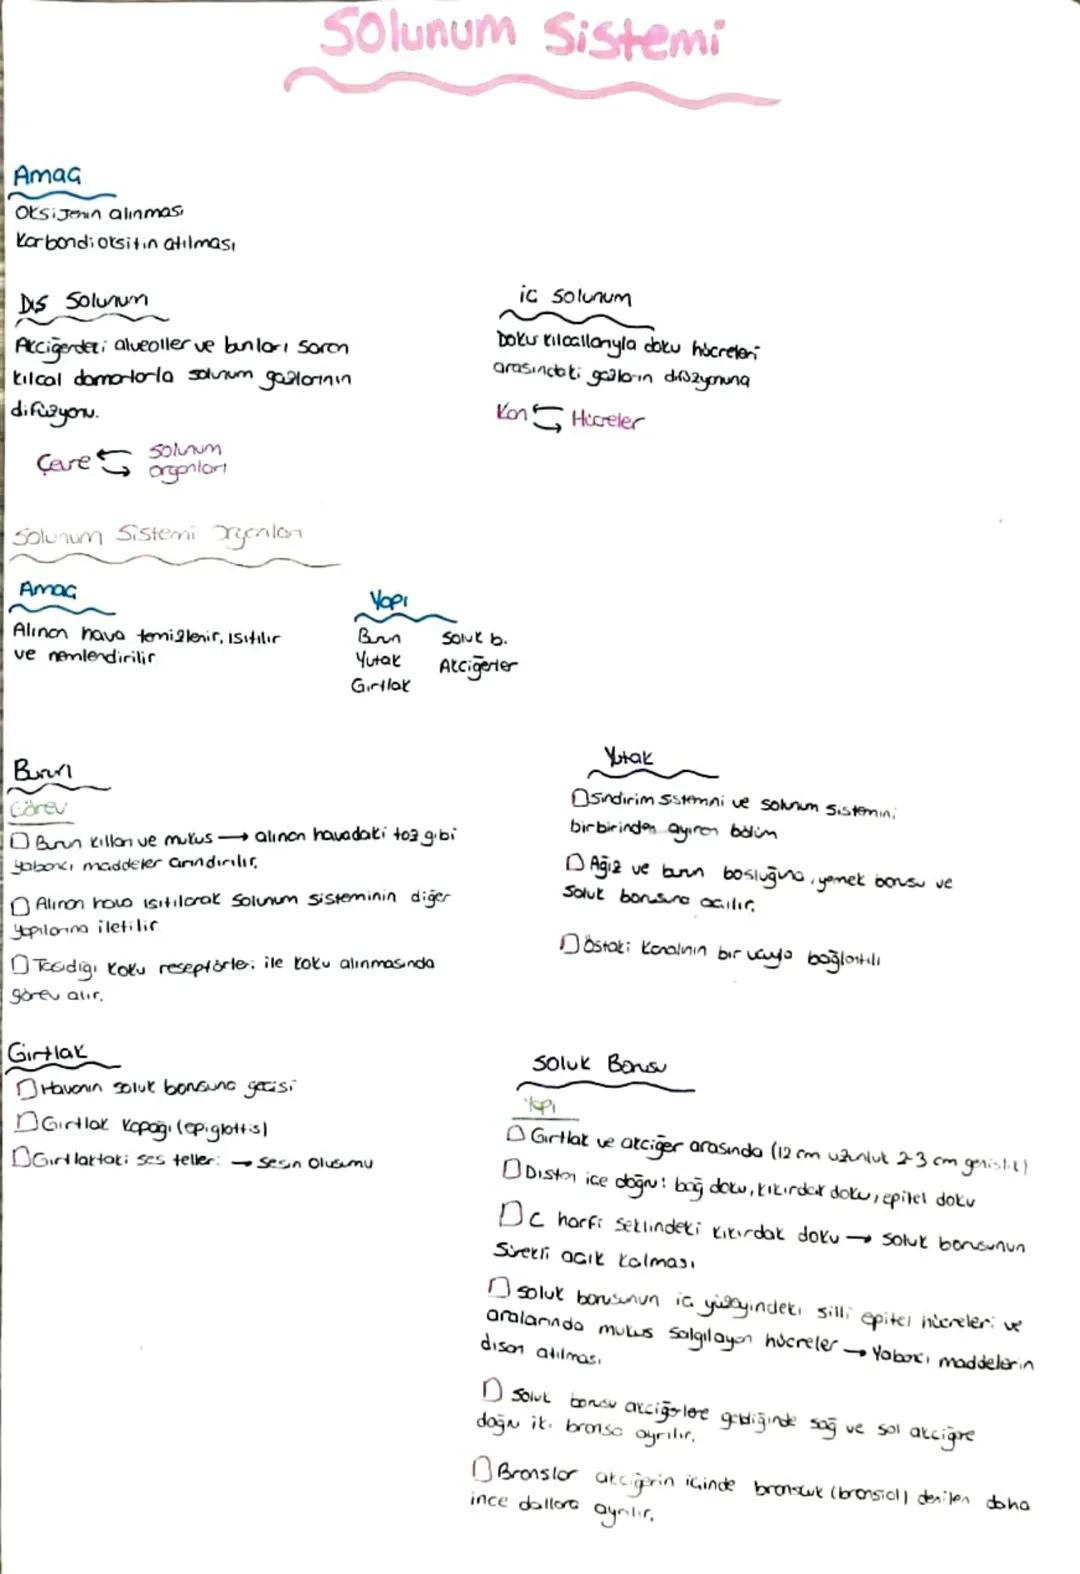 Solunum Sistemi
Amaç
Oksijenin alınması
Karbondioksitin atılması
Dış Solunum
Akciğerdeki alveoller ve bunları saran
kılcal damarlarla solunum gazlarının
difüzyonu.
Çevre ⇆ Solunum
organları
iç Solunum
Doku kılcallarıyla doku hücreleri
arasındaki gazların difüzyonuna
Kan ⇆ Hücreler
Solunum Sistemi Organları
Amaç
Alınan hava temizlenir, ısıtılır
ve nemlendirilir
Yapı
Burun Soluk b.
Yutak Akciğerler
Gırtlak
Burun
Görev
Burun kılları ve mukus → alınan havadaki toz gibi
yabancı maddeler arındırılır.
Alınan hava ısıtılarak Solunum sisteminin diğer
yapılarına iletilir
Taşıdığı koku reseptörleri ile koku alınmasında
görev alır.
Yutak
Sindirim sistemni ve solunum sistemini
birbirinden ayıran bölüm
Ağız ve burun boşluğuna, yemek borusu ve
Soluk borusuna açılır.
Östaki kanalının bir ucuyla bağlantılı
Gırtlak
Havanın soluk borusuna geçişi
Gırtlak kapağı (epiglottis)
Gırtlaktaki ses telleri → sesin oluşumu
Soluk Borusu
Yapı
Gırtlak ve akciğer arasında (12 cm uzunluk 2-3 cm genişlik)
Dıştan içe doğru: bağ doku, kıkırdak doku, epitel doku
C harfi şeklindeki kıkırdak doku → soluk borusunun
Sürekli açık kalması
Soluk borusunun iç yüzeyindeki silli epitel hücreleri ve
aralarında mukus salgılayan hücreler → Yabancı maddelerin
dışarı atılması
Soluk borusu akciğerlere geldiğinde sağ ve sol akciğre
doğru iki bronşa ayrılır.
Bronşlar akciğerin içinde bronşcuk (bronşiol) denilen daha
ince dallara ayrılır.